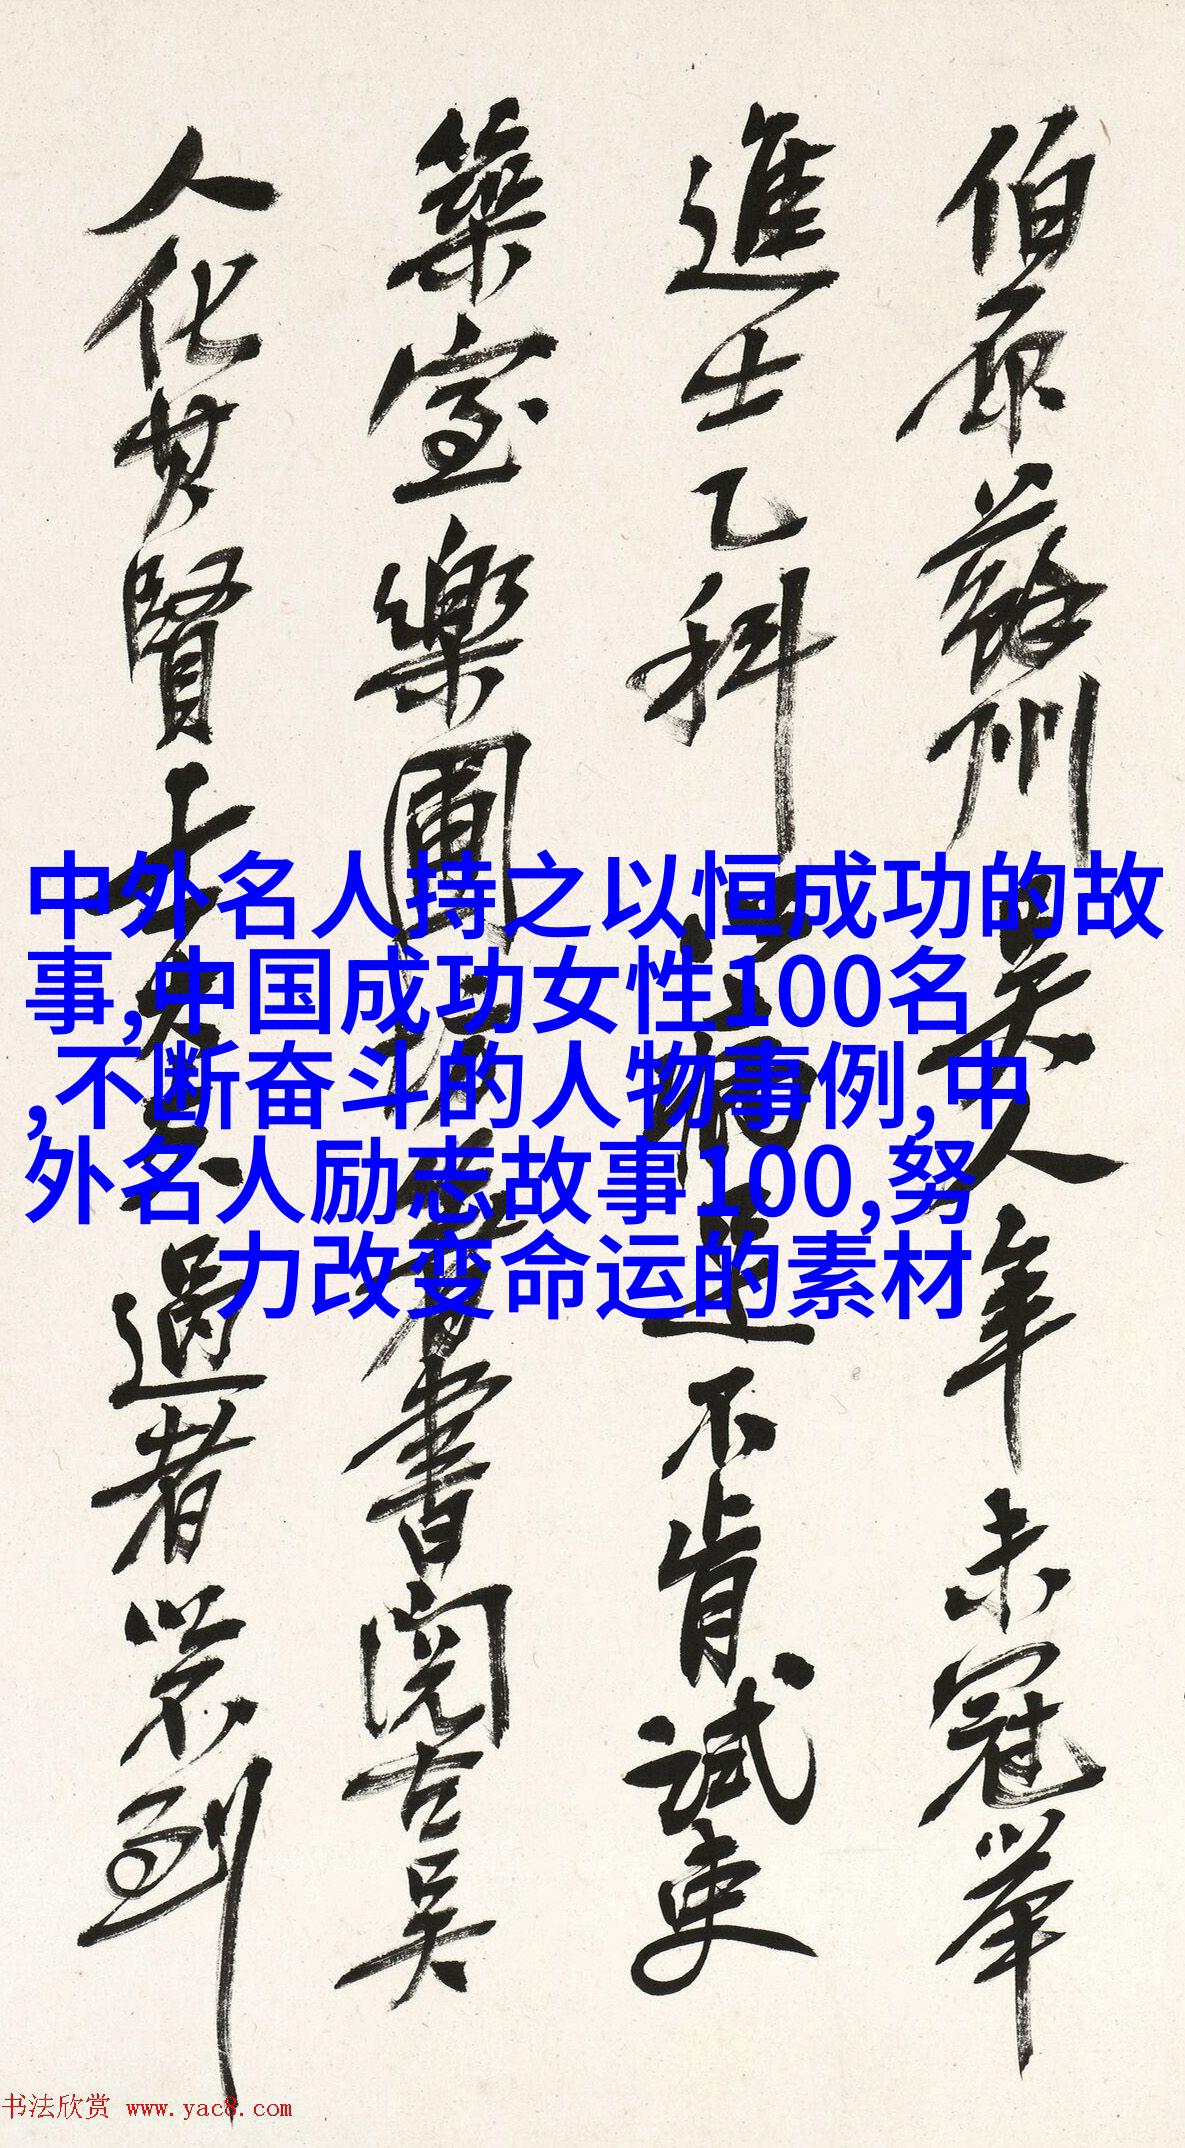 伯原蘇州吳人年未冠舉
進士乙科病足不肯試吏
築室樂圃著書閱古吳
人化其賢士大夫過者以不到
中外名人持之以恒成功的故
事,中国成功女性100名
,不断奋斗的人物事例,中
外名人励志故事100,努
力改变命运的素材
书法欣赏 www.yac8.com